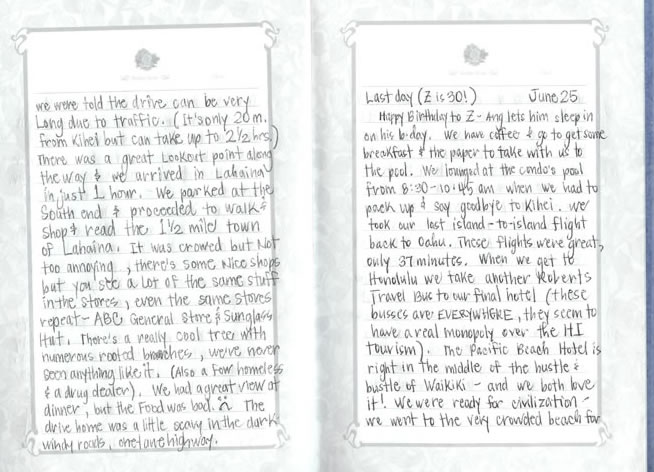 we were told the drive can be very
Long due to traffic. (It's only 20 m.
from Kihei but can take up to 2 1/2 hrs.)
There was a great Lookout point along
the way & we arrived in Lahaina
in just 1 hour. We parked at the
South end & proceeded to walk &
shop & read the 1 1/2 mile town
of Lahaina. It was crowed but Not
too annoying, there's some Nice shops
but you see a lot of the same stuff
in the stores, even the same stores
repeat - ABC General Store & Sunglass
Hut. There's a really cool tree with
numerous rooted branches, we've never
seen anything like it. (Also a few homeless
& a drug dealer). We had a great view at
dinner, but the Food was bad. The
drive home was a little scary in the dark
windy roads, one lane highway.
Last day (Z is 30!) June 25
Happy Birthday to Z - Ang lets him sleep in
on his b-day. We have coffee & go to get some
breakfast & the paper to take with us to
the pool. We lounged at the condo's pool
from 8:30-10:45 am when we had to
pack up & say goodbye to Kihei. We
took our last island-to-island flight
back to Oahu. These flights were great,
only 37 minutes. When we get to
Honolulu we take another Roberts
Travel Bus to our final hotel (these
busses are EVERYWHERE, they seem to
have a real monopoly over the HI
tourism). The Pacific Beach Hotel is
right in the middle of the hustle &
bustle of Waikiki - and we both love
it! We were ready for civilization -
we went to the very crowded beach for